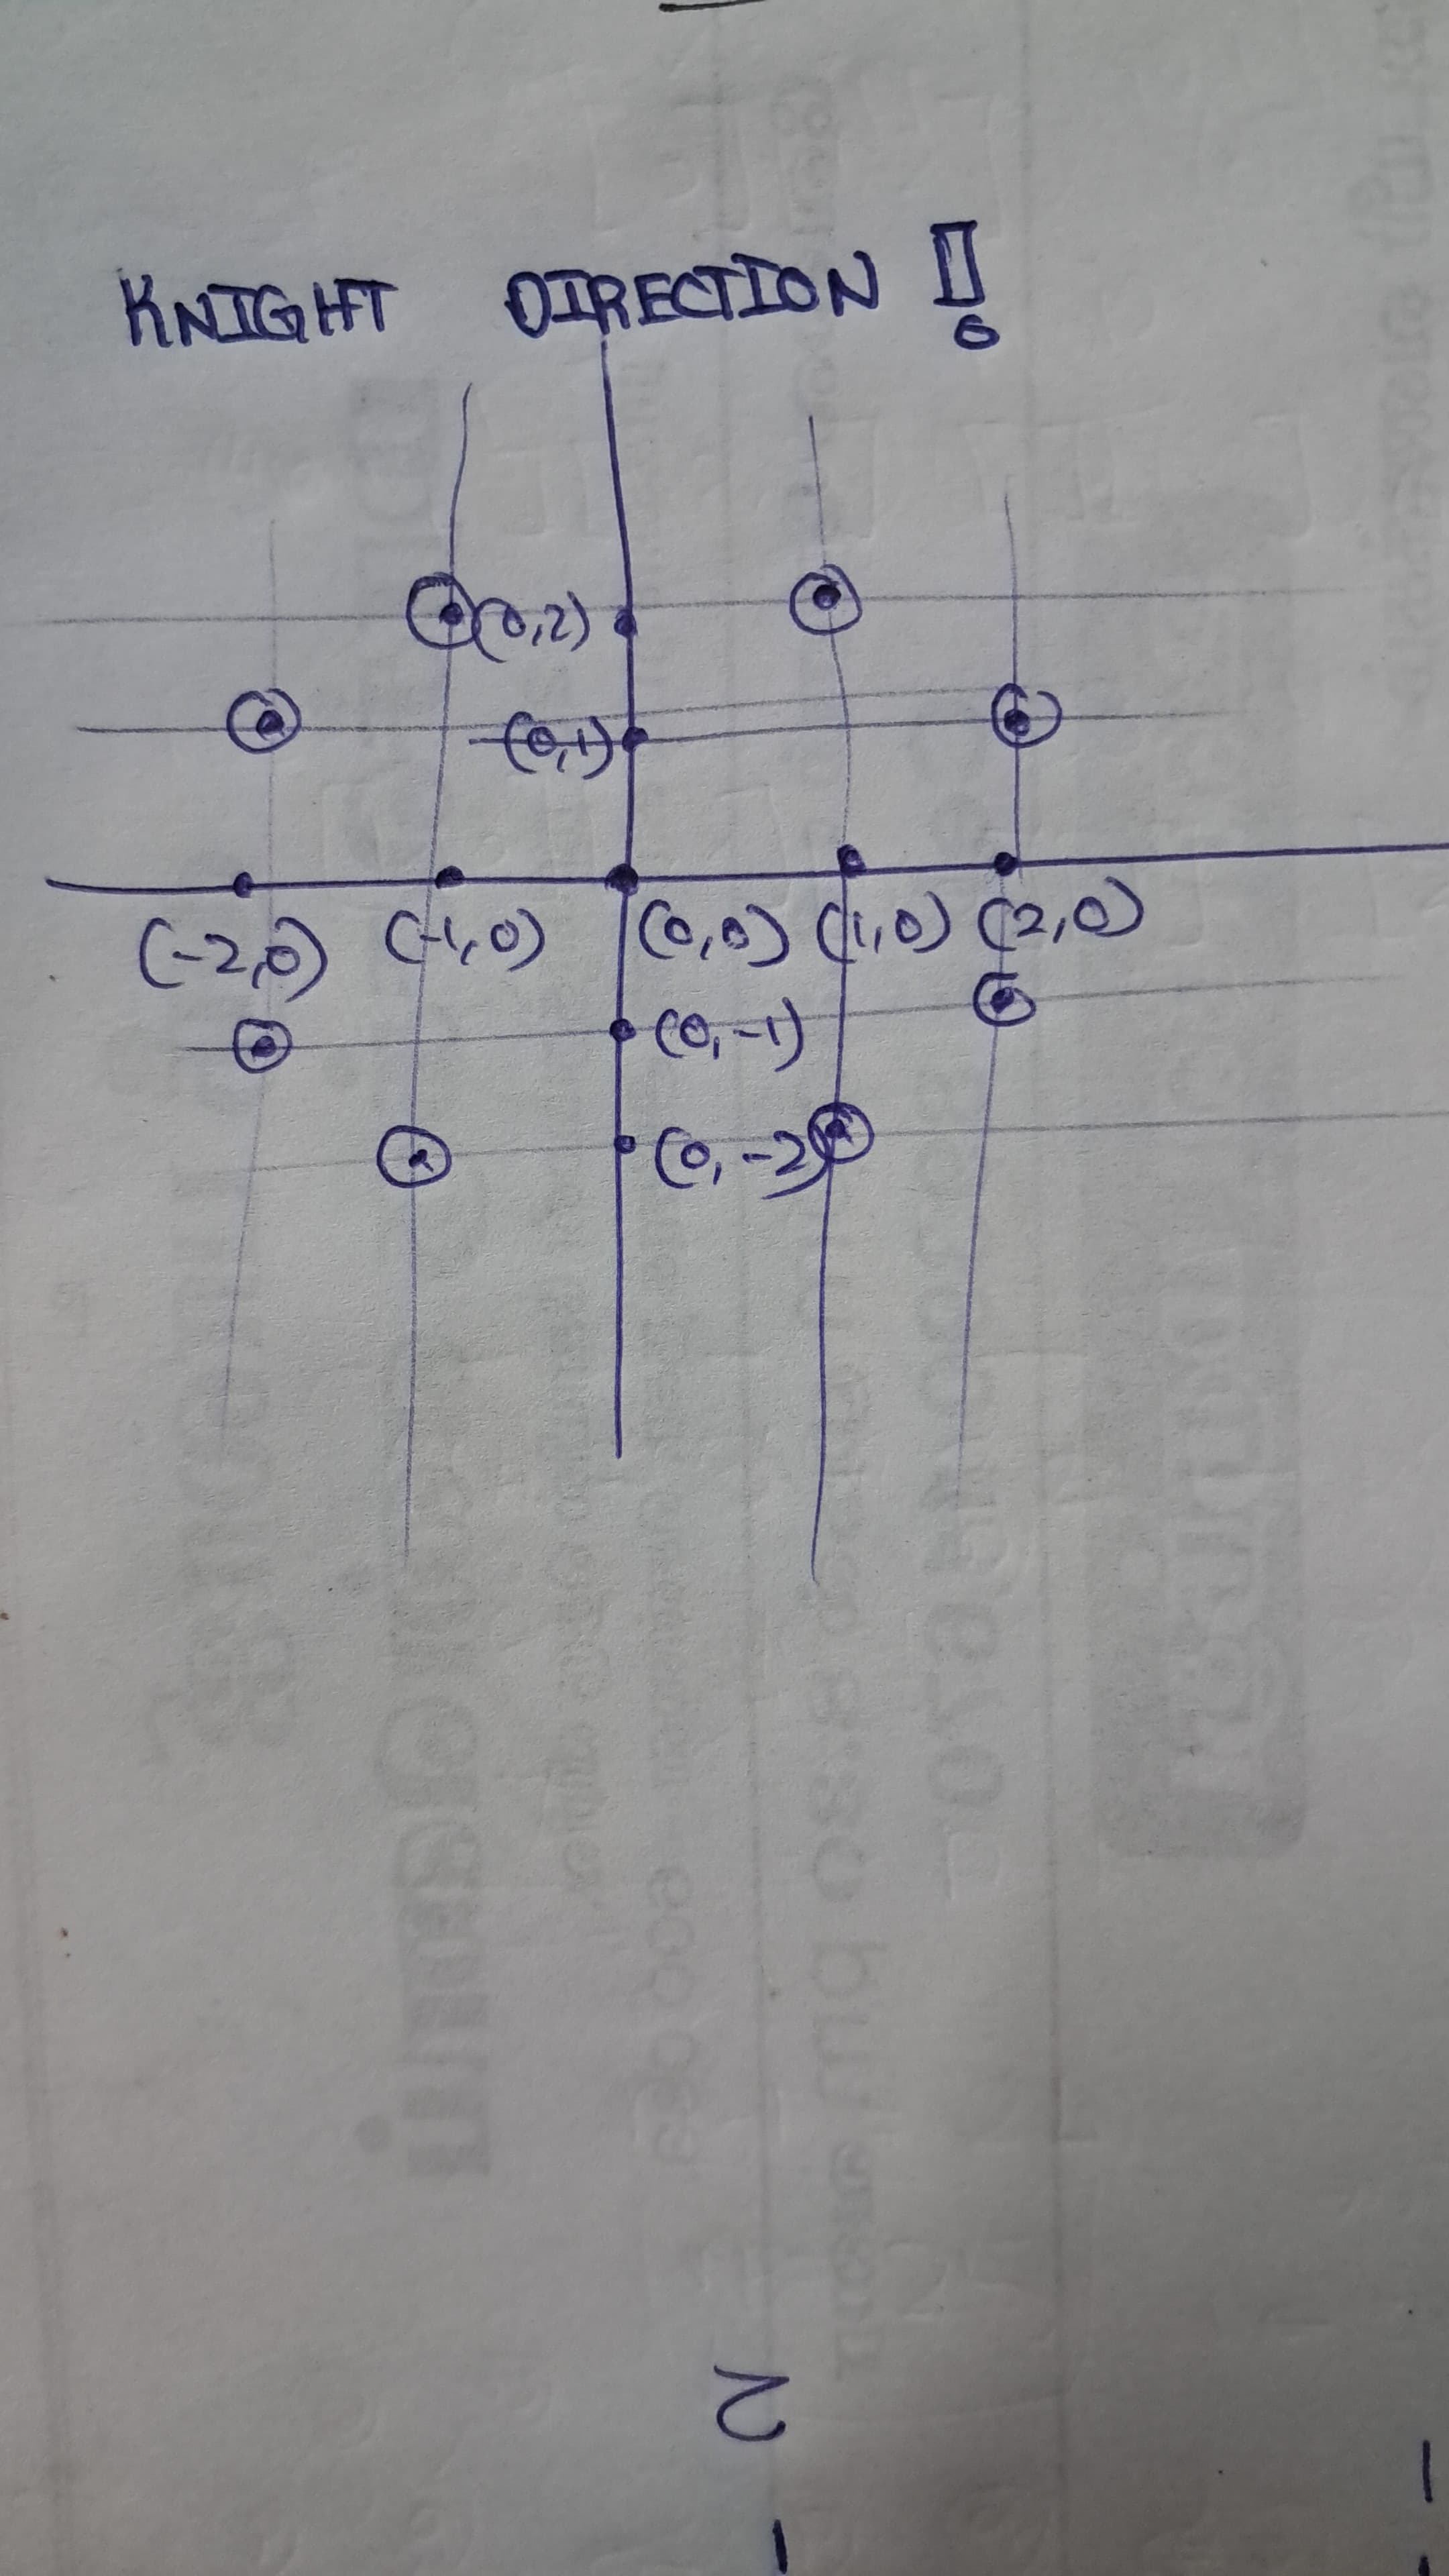 KNIGHT DIRECTION !
(0,2)
(0,1)
(-2,0) (-1,0) (0,0) (1,0) (2,0)
(0,-1)
(0,-2)